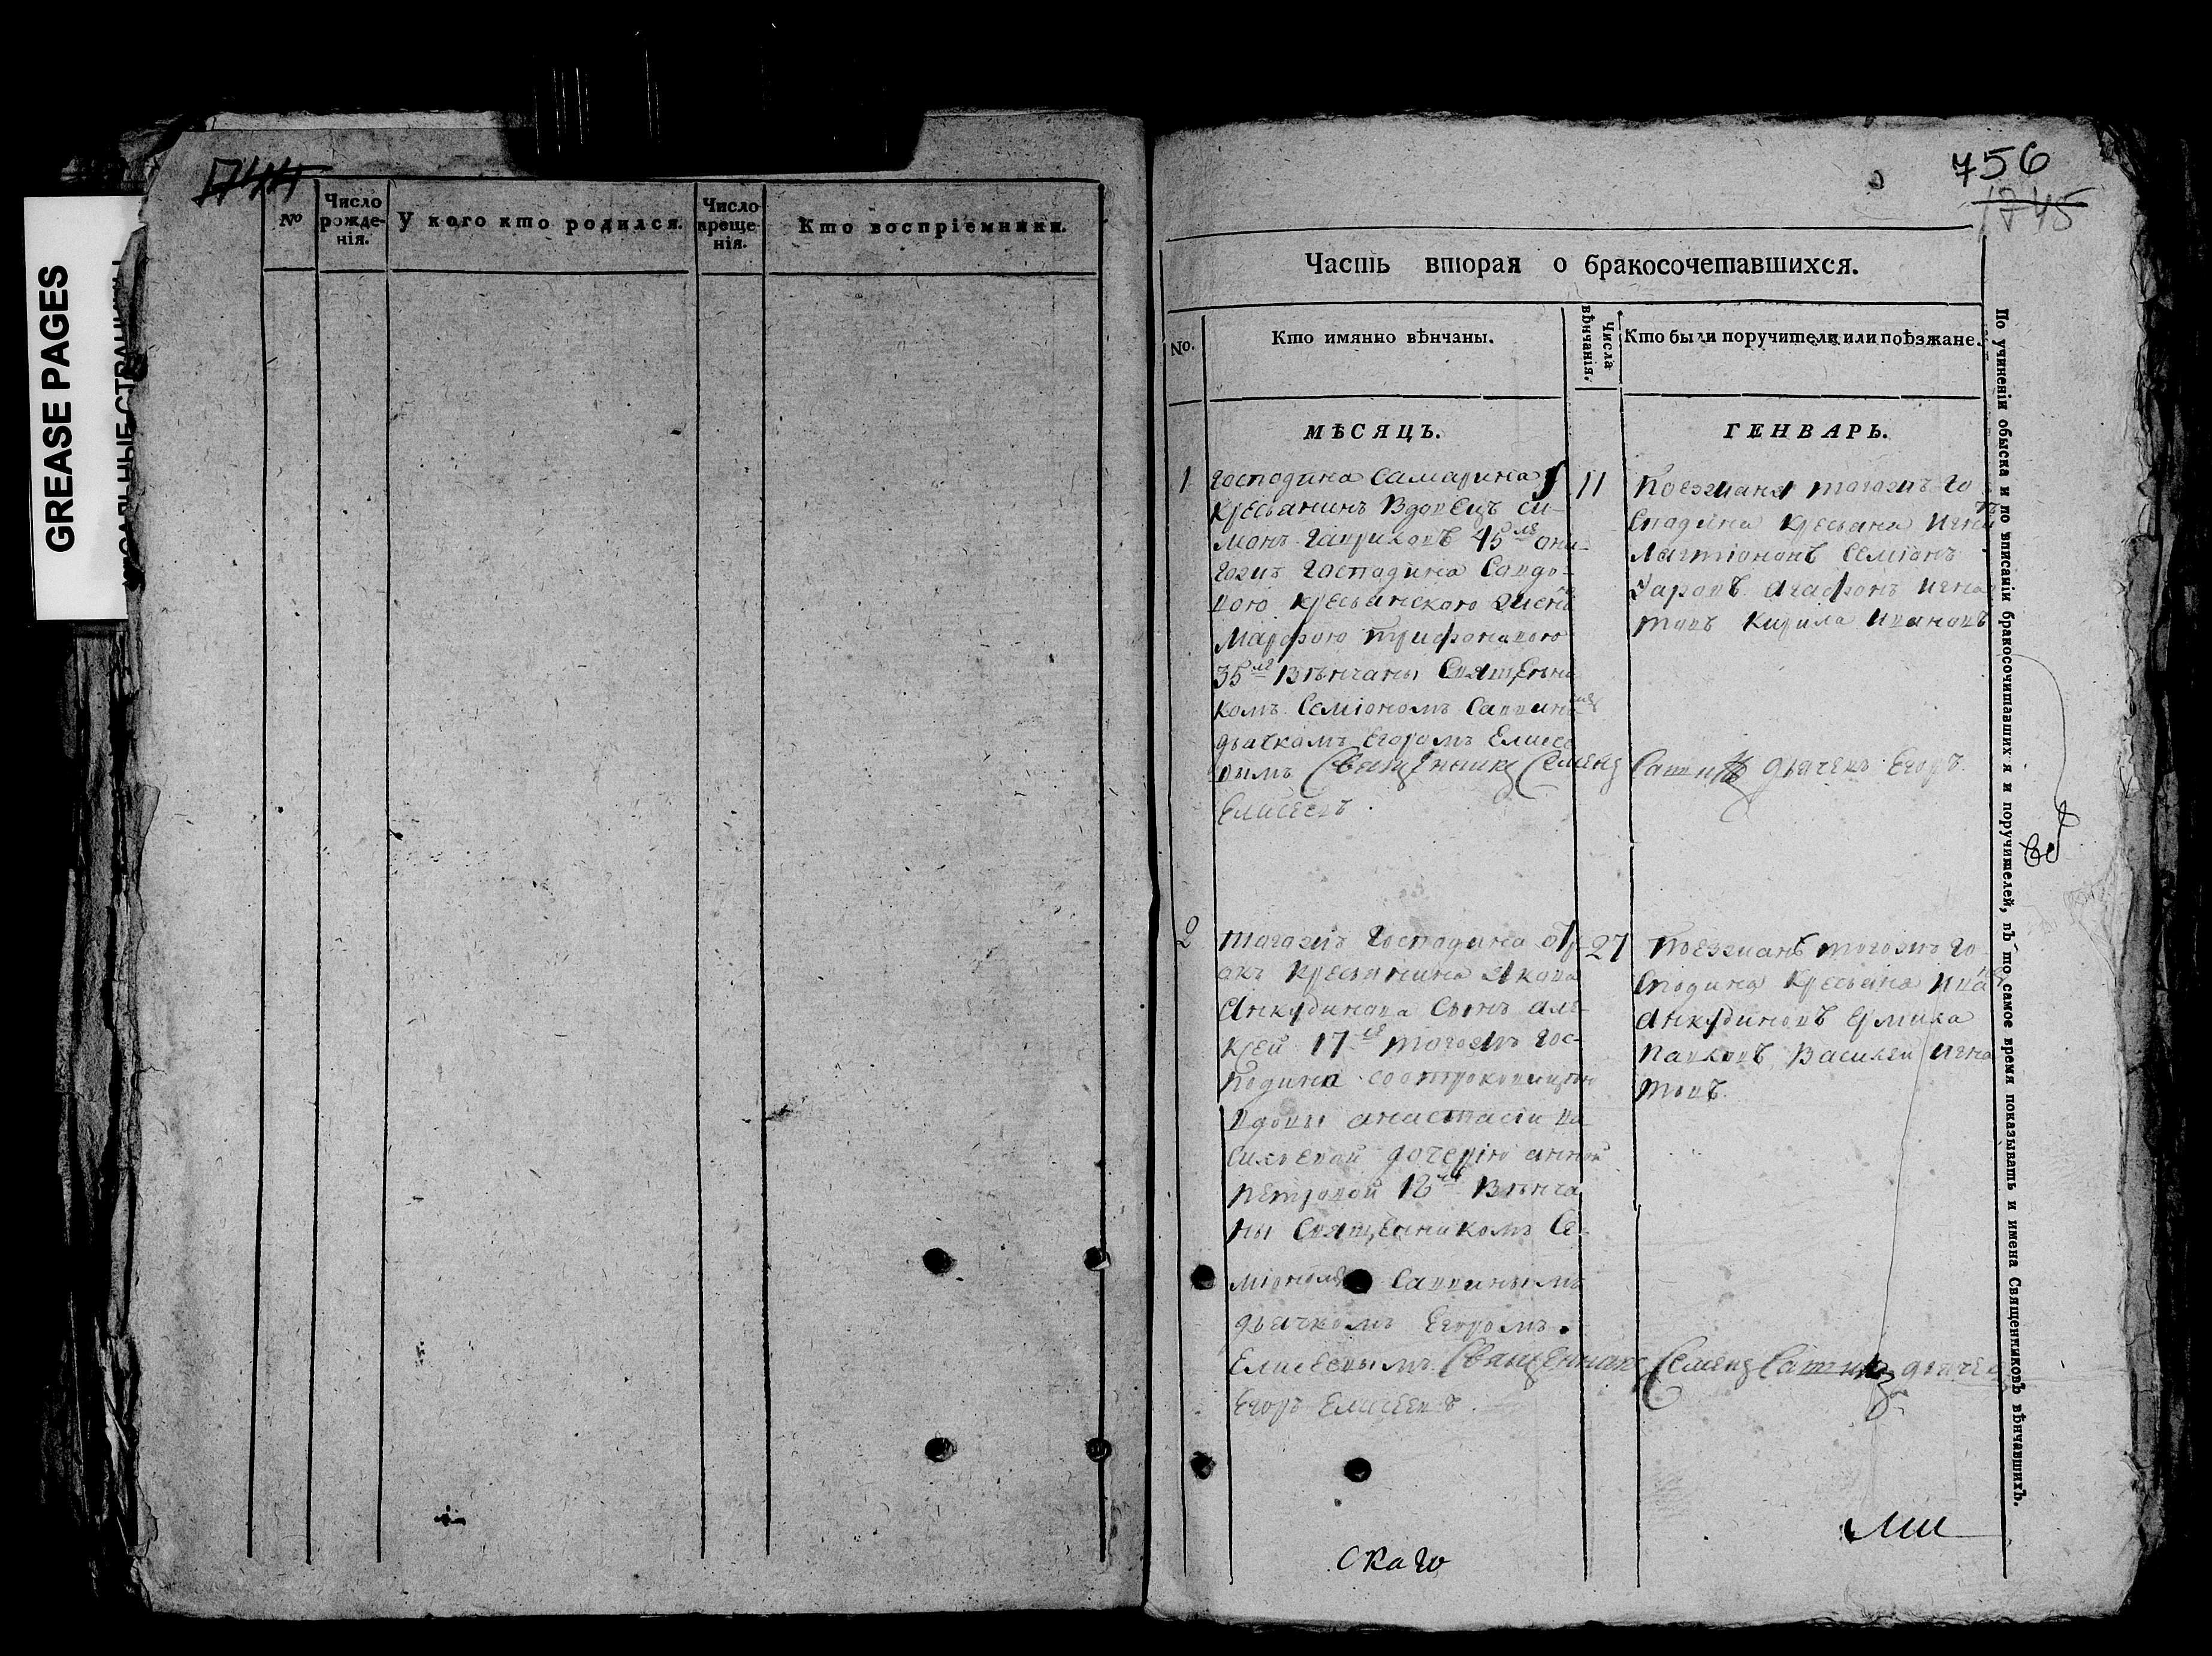 GREASE PAGES
1744
№
Число рожде-нія.
У кого кто родился.
Число креще-нія.
Кто воспріемники.
756
1745
Часть вторая о бракосочетавшихся.
No.
Кто имянно вѣнчаны.
Числа вѣнчанія.
Кто были поручители или поѣзжане.
МѢСЯЦЪ.
ГЕНВАРЬ.
1
Господина Самарина
кресьанинъ Вдовецъ си-
монъ Гавриловъ 45 лѣ
гожъ Господина Совдо-
вою кресьанского жены
Марфою трифоновою
35 лѣ Вѣнчаны Священи
комъ Семіономъ Саввин
дьячкомъ Егоромъ Елисе
вымъ Священникъ Семенъ
Елисеевъ
11
Поезжаня тогожъ Го
сподина кресьана Игна
Лагтіоновъ Семіонъ
Уаровъ Агафонъ Игна
товъ Кирила Ивановъ
дьячекъ Егоръ
2
тогожъ Господина отр-
акъ кресьянина Якова
Анкудинова Сынъ
17 лѣ тогожъ Гос-
подина соотроковицею
вдовы анастасіи ва
силъевой дочерію анной
Петровой 18 лѣ Вѣнча
ны Священникомъ Се-
міономъ Саввинымъ
дьячкомъ Егоромъ
Елисеевымъ Священникъ Семенъ
Егоръ Елисеевъ
27
Поезжанѣ тогожъ го
сподина Кресьана Ива
Анкудиновъ Ермила
Павловъ Василеи Игна
товъ
дьячек
скаго
ми
По учиненіи обыска и по вписаніи бракосочитавшихся и поручителей, въ то самое время показывать и имена Священниковъ вѣнчавшихъ.